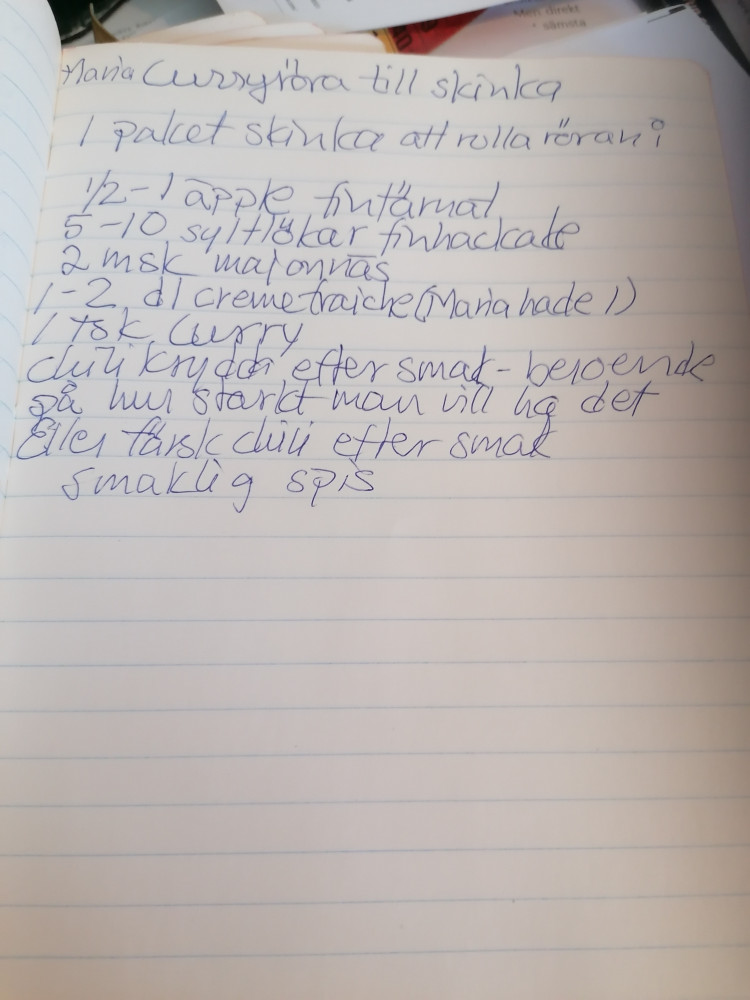 Men direkt
• sämsta
Maria Curryröra till skinka
1 paket skinka att rolla röran i
1/2-1 äpple fintärnat
5-10 syltlökar finhackade
2 msk majonnäs
1-2 dl creme fraiche (Maria hade 1)
1 tsk curry
chili krydda efter smak - beroende
på hur starkt man vill ha det
Eller färsk chili efter smak
smaklig spis